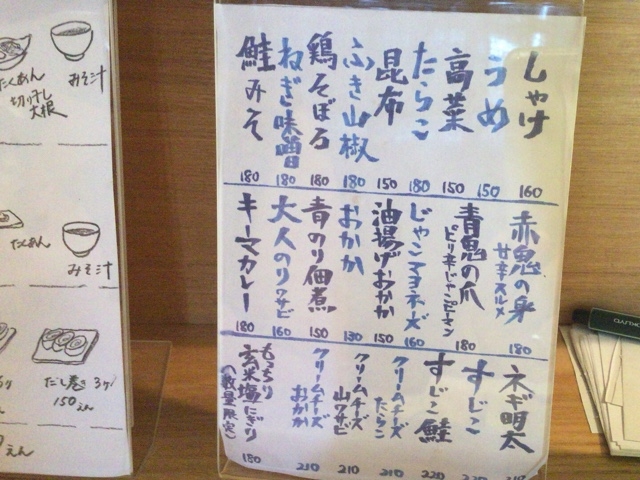 しゃけ 160
うめ 150
高菜 150
たらこ 180
昆布 150
ふき山椒 180
鶏そぼろ 180
ねぎ味噌 180
鮭みそ 180
赤鬼の身 甘辛スルメ 180
青鬼の爪 ピリ辛じゃこピーマン 180
じゃこマヨネーズ 160
油揚げおかか 150
おかか 130
青のり佃煮 150
大人のりワサビ 160
キーマカレー 180
ネギ明太
すじこ
すじこ鮭 220
クリームチーズ たらこ 210
クリームチーズ 山ワサビ 210
クリームチーズ おかか 210
もっちり 玄米塩にぎり (数量限定) 180
みそ汁
たくあん
切り干し大根
みそ汁
たくあん
だし巻き
150えん
えん